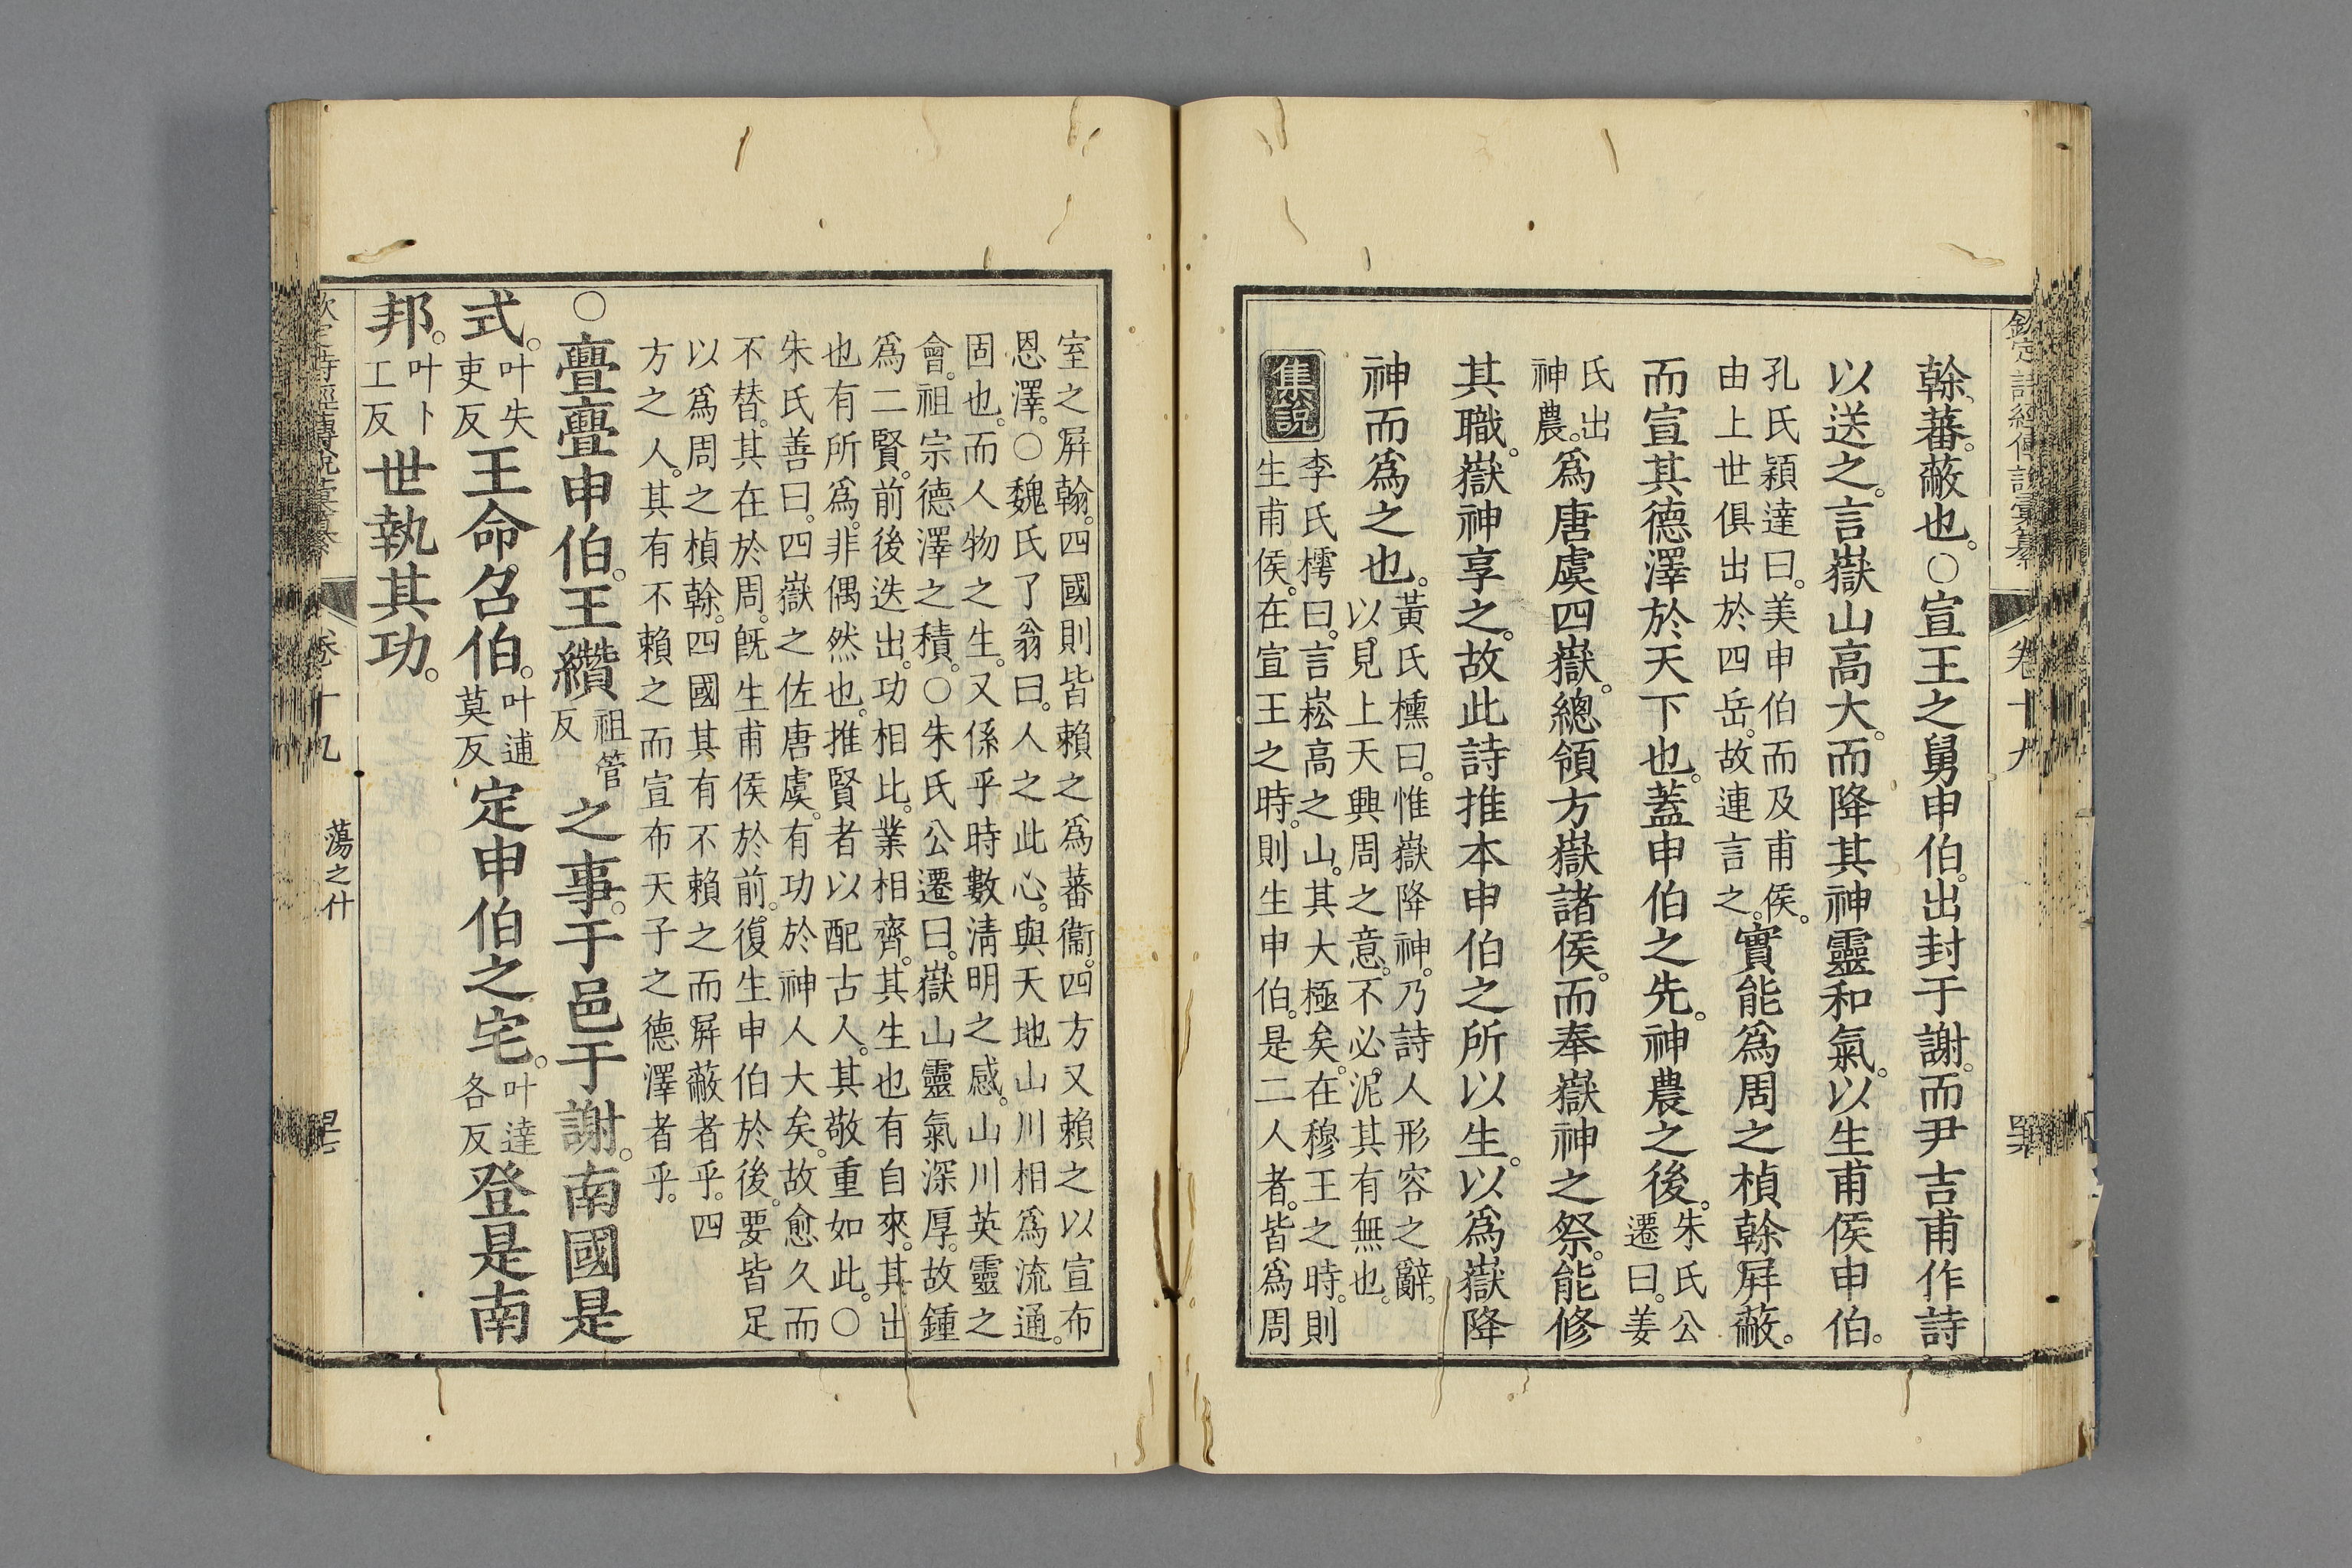 幹。蕃。蔽也。○宣王之舅申伯。出封于謝。而尹吉甫作詩
以送之。言嶽山高大。而降其神靈和氣。以生甫侯申伯。
孔氏穎達曰。美申伯而及甫侯。
由上世俱出於四岳。故連言之。
實能爲周之楨榦屛蔽。
而宣其德澤於天下也。蓋申伯之先。神農之後。
朱氏公
遷曰。姜
氏出
神農。
爲唐虞四嶽。總領方嶽諸侯。而奉嶽神之祭。能修
其職。嶽神享之。故此詩推本申伯之所以生。以爲嶽降
神而爲之也。
黃氏櫄曰。惟嶽降神。乃詩人形容之辭。
以見上天興周之意。不必泥其有無也。
集說
李氏樗曰。言崧高之山。其大極矣。在穆王之時。則
生甫侯。在宣王之時。則生申伯。是二人者。皆爲周
欽定詩經傳說彙纂
卷十九
室之屛翰。四國則皆賴之爲蕃衞。四方又賴之以宣布
恩澤。○魏氏了翁曰。人之此心。與天地山川相爲流通。
固也。而人物之生。又係乎時數淸明之感。山川英靈之
會。祖宗德澤之積。○朱氏公遷曰。嶽山靈氣深厚。故鍾
爲二賢。前後迭出。功相比。業相齊。其生也有自來。其出
也有所爲。非偶然也。推賢者以配古人。其敬重如此。○
朱氏善曰。四嶽之佐唐虞。有功於神人大矣。故愈久而
不替。其在於周。旣生甫侯於前。復生申伯於後。要皆足
以爲周之楨榦。四國其有不賴之而屛蔽者乎。四
方之人。其有不賴之而宣布天子之德澤者乎。
○亹亹申伯。王纘
祖管
反
之事。于邑于謝。南國是
式。
叶失
吏反
王命召伯。
叶逋
莫反
定申伯之宅。
叶達
各反
登是南
邦。
叶卜
工反
世執其功。
欽定詩經傳說彙纂
卷十九
蕩之什